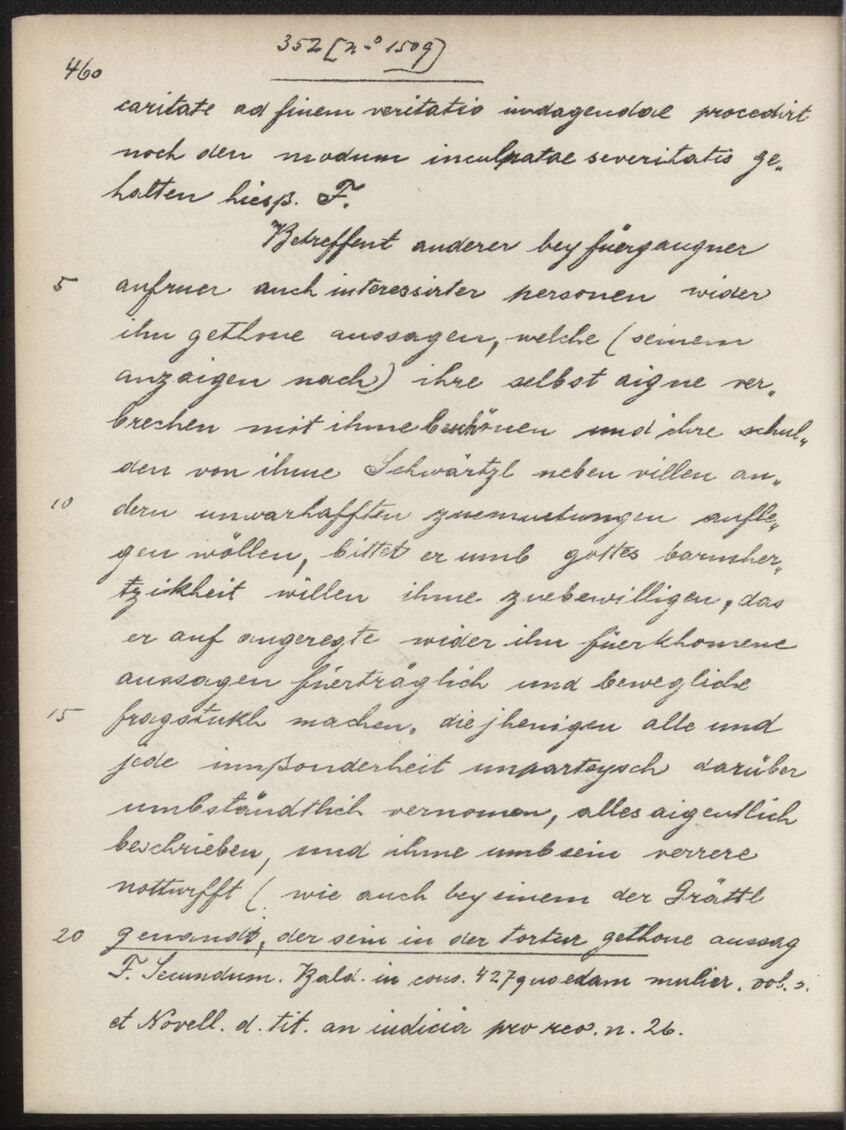 352 [n-o 1509]
460
caritate ad finem veritatis indagendae procedirt
noch den modum inculpatae severitatis ge„
halten hiesß. F.
Betreffent anderer bey fürgangner
5 aufruer auch interessirter personen wider
ihn gethone aussagen, welche (seinem
anzaigen nach) ihre selbst aigne ver„
brechen mit ihme beschönen und ihre schul„
den von ihme Schwärtzl neben villen an„
10 dern unwarhafften zuemuetungen aufle„
gen wöllen, bittet er umb gottes barmher„
tzikheit willen ihme zuebewilligen, das
er auf angeregte wider ihn fürkhomene
aussagen fürträglich und bewegliche
15 fragstukh machen, diejhenigen alle und
jede innßonderheit unparteysch darüber
umbständtlich vernomen, alles aigentlich
beschrieben, und ihme umb sein verrere
notturfft (wie auch bey einem der Grättl
20 genandt, der sein in der tortur gethone aussag
F. Secundum. Bald. in cons. 427 quaedam mulier. vol. 3.
et Novell. d. tit. an iudicia pro reo. n. 26.